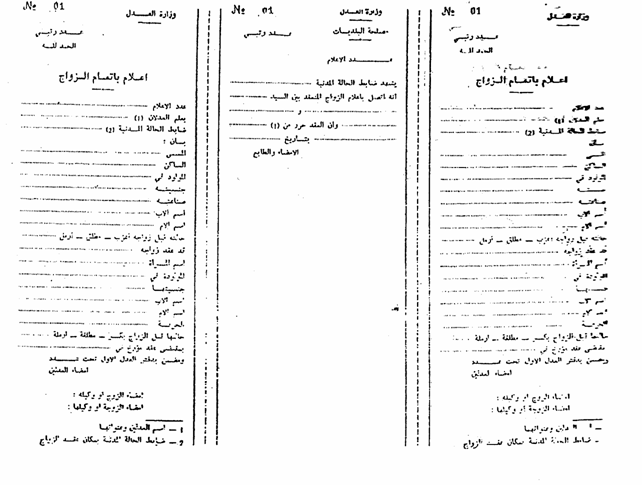 وزارة العدل
№ 01
عدد رتبي
الحمد لله
اعلام باتمام الزواج
عدد الاعلام
يعلم العدلان (1)
ضابط الحالة المدنية (2)
بان :
المسمى
الساكن
المولود في
جنسيته
صناعته
اسم الاب
اسم الام
حالته قبل زواجه اعزب – مطلق – ارمل
قد عقد زواجه
أسم المرأة
المولودة في
جنسيتها
اسم الاب
اسم الام
الحرفة
حالتها قبل الزواج بكر – مطلقة – ارملة
بمقتضى عقد مؤرخ في
وضمن بدفتر العدل الاول تحت عدد
امضاء العدلين
امضاء الزوج او وكيله :
امضاء الزوجة او وكيلها :
– ضابط الحالة المدنية بمكان عقد الزواج
وزارة العدل
№ 01
مصلحة البلديات
عدد رتبي
عدد الاعلام
يشهد ضابط الحالة المدنية
أنه اتصل باعلام الزواج المنعقد بين السيد
و
وأن العقد حرر من (1)
بتاريخ
الامضاء والطابع
وزارة العدل
№ 01
عدد رتبي
الحمد لله
اعلام باتمام الزواج
عدد الاعلام
يعلم العدلان (1)
ضابط الحالة المدنية (2)
بان :
المسمى
الساكن
المولود في
جنسيته
صناعته
اسم الاب
اسم الام
حالته قبل زواجه اعزب – مطلق – ارمل
قد عقد زواجه
اسم المرأة
المولودة في
جنسيتها
اسم الاب
اسم الام
الحرفة
حالتها قبل الزواج بكر – مطلقة – ارملة
بمقتضى عقد مؤرخ في
وضمن بدفتر العدل الاول تحت عدد
امضاء العدلين
امضاء الزوج او وكيله :
امضاء الزوجة او وكيلها :
1 – اسم العدلين وعنوانها
2 – ضابط الحالة المدنية بمكان عقد الزواج